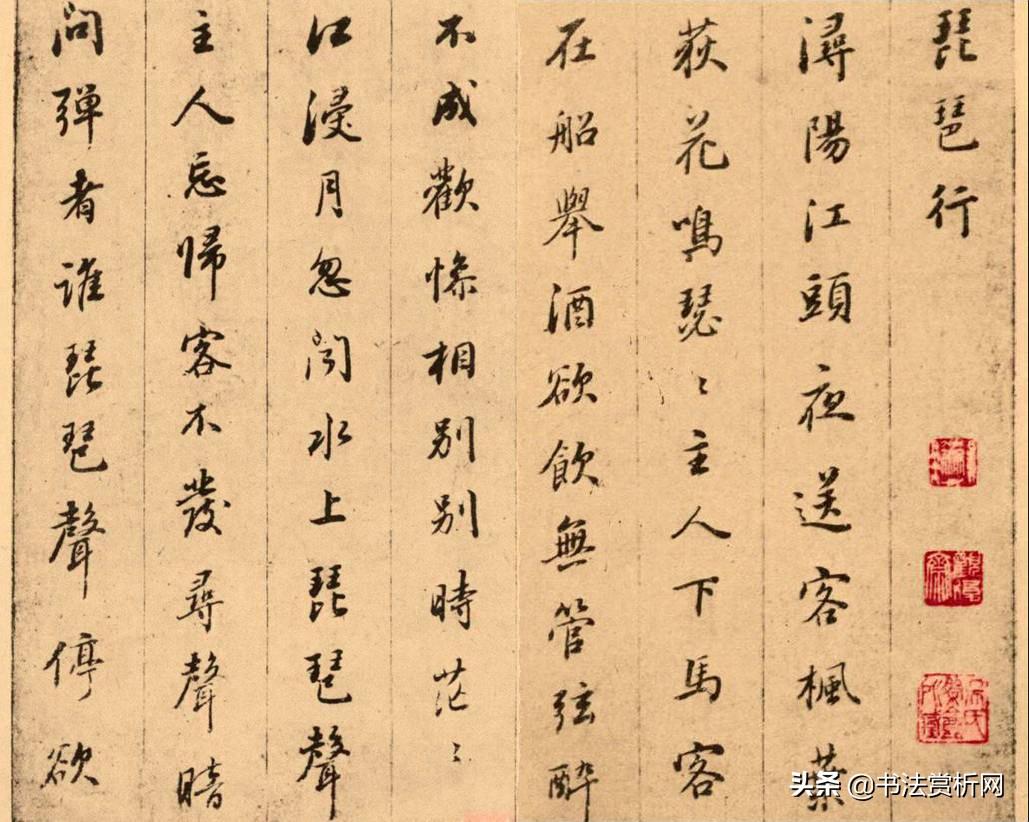 琵琶行
潯陽江頭夜送客楓葉
荻花鳴瑟〻主人下馬客
在船舉酒欲飲無管弦醉
不成歡慘相別別時茫〻
江浸月忽聞水上琵琶聲
主人忘歸客不發尋聲暗
問弹者誰琵琶聲停欲
头条 @书法赏析网